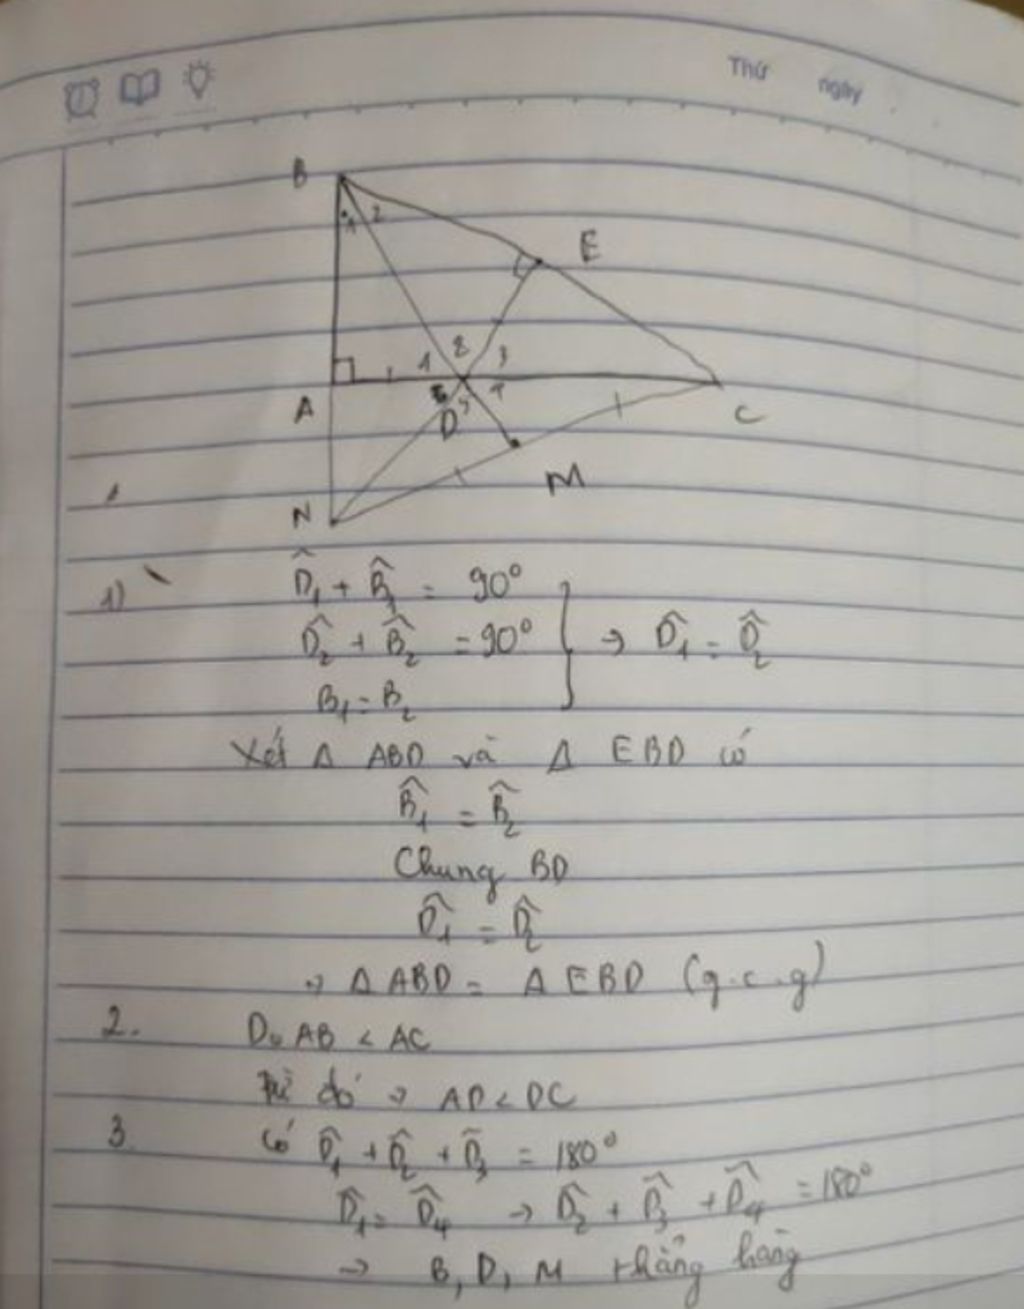 Thứ ngày
B
1 2
E
1 2 3
A
6 5 4
D
C
M
N
1) D̂₁ + B̂₁ = 90°
D̂₂ + B̂₂ = 90° → D̂₁ = D̂₂
B₁ = B₂
Xét Δ ABD và Δ EBD có
B̂₁ = B̂₂
Chung BD
D̂₁ = D̂₂
→ Δ ABD = Δ EBD (g.c.g)
2. Do AB < AC
Từ đó → AD < DC
3. Có D̂₁ + D̂₂ + D̂₃ = 180°
D̂₁ = D̂₄ → D̂₂ + D̂₃ + D̂₄ = 180°
→ B, D, M thẳng hàng